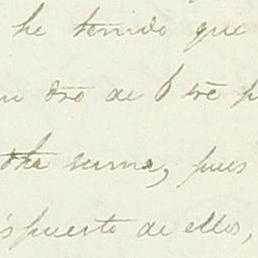 he tenido que
dro de 6 rs p
dha suma, pues
spuesto de ellos,